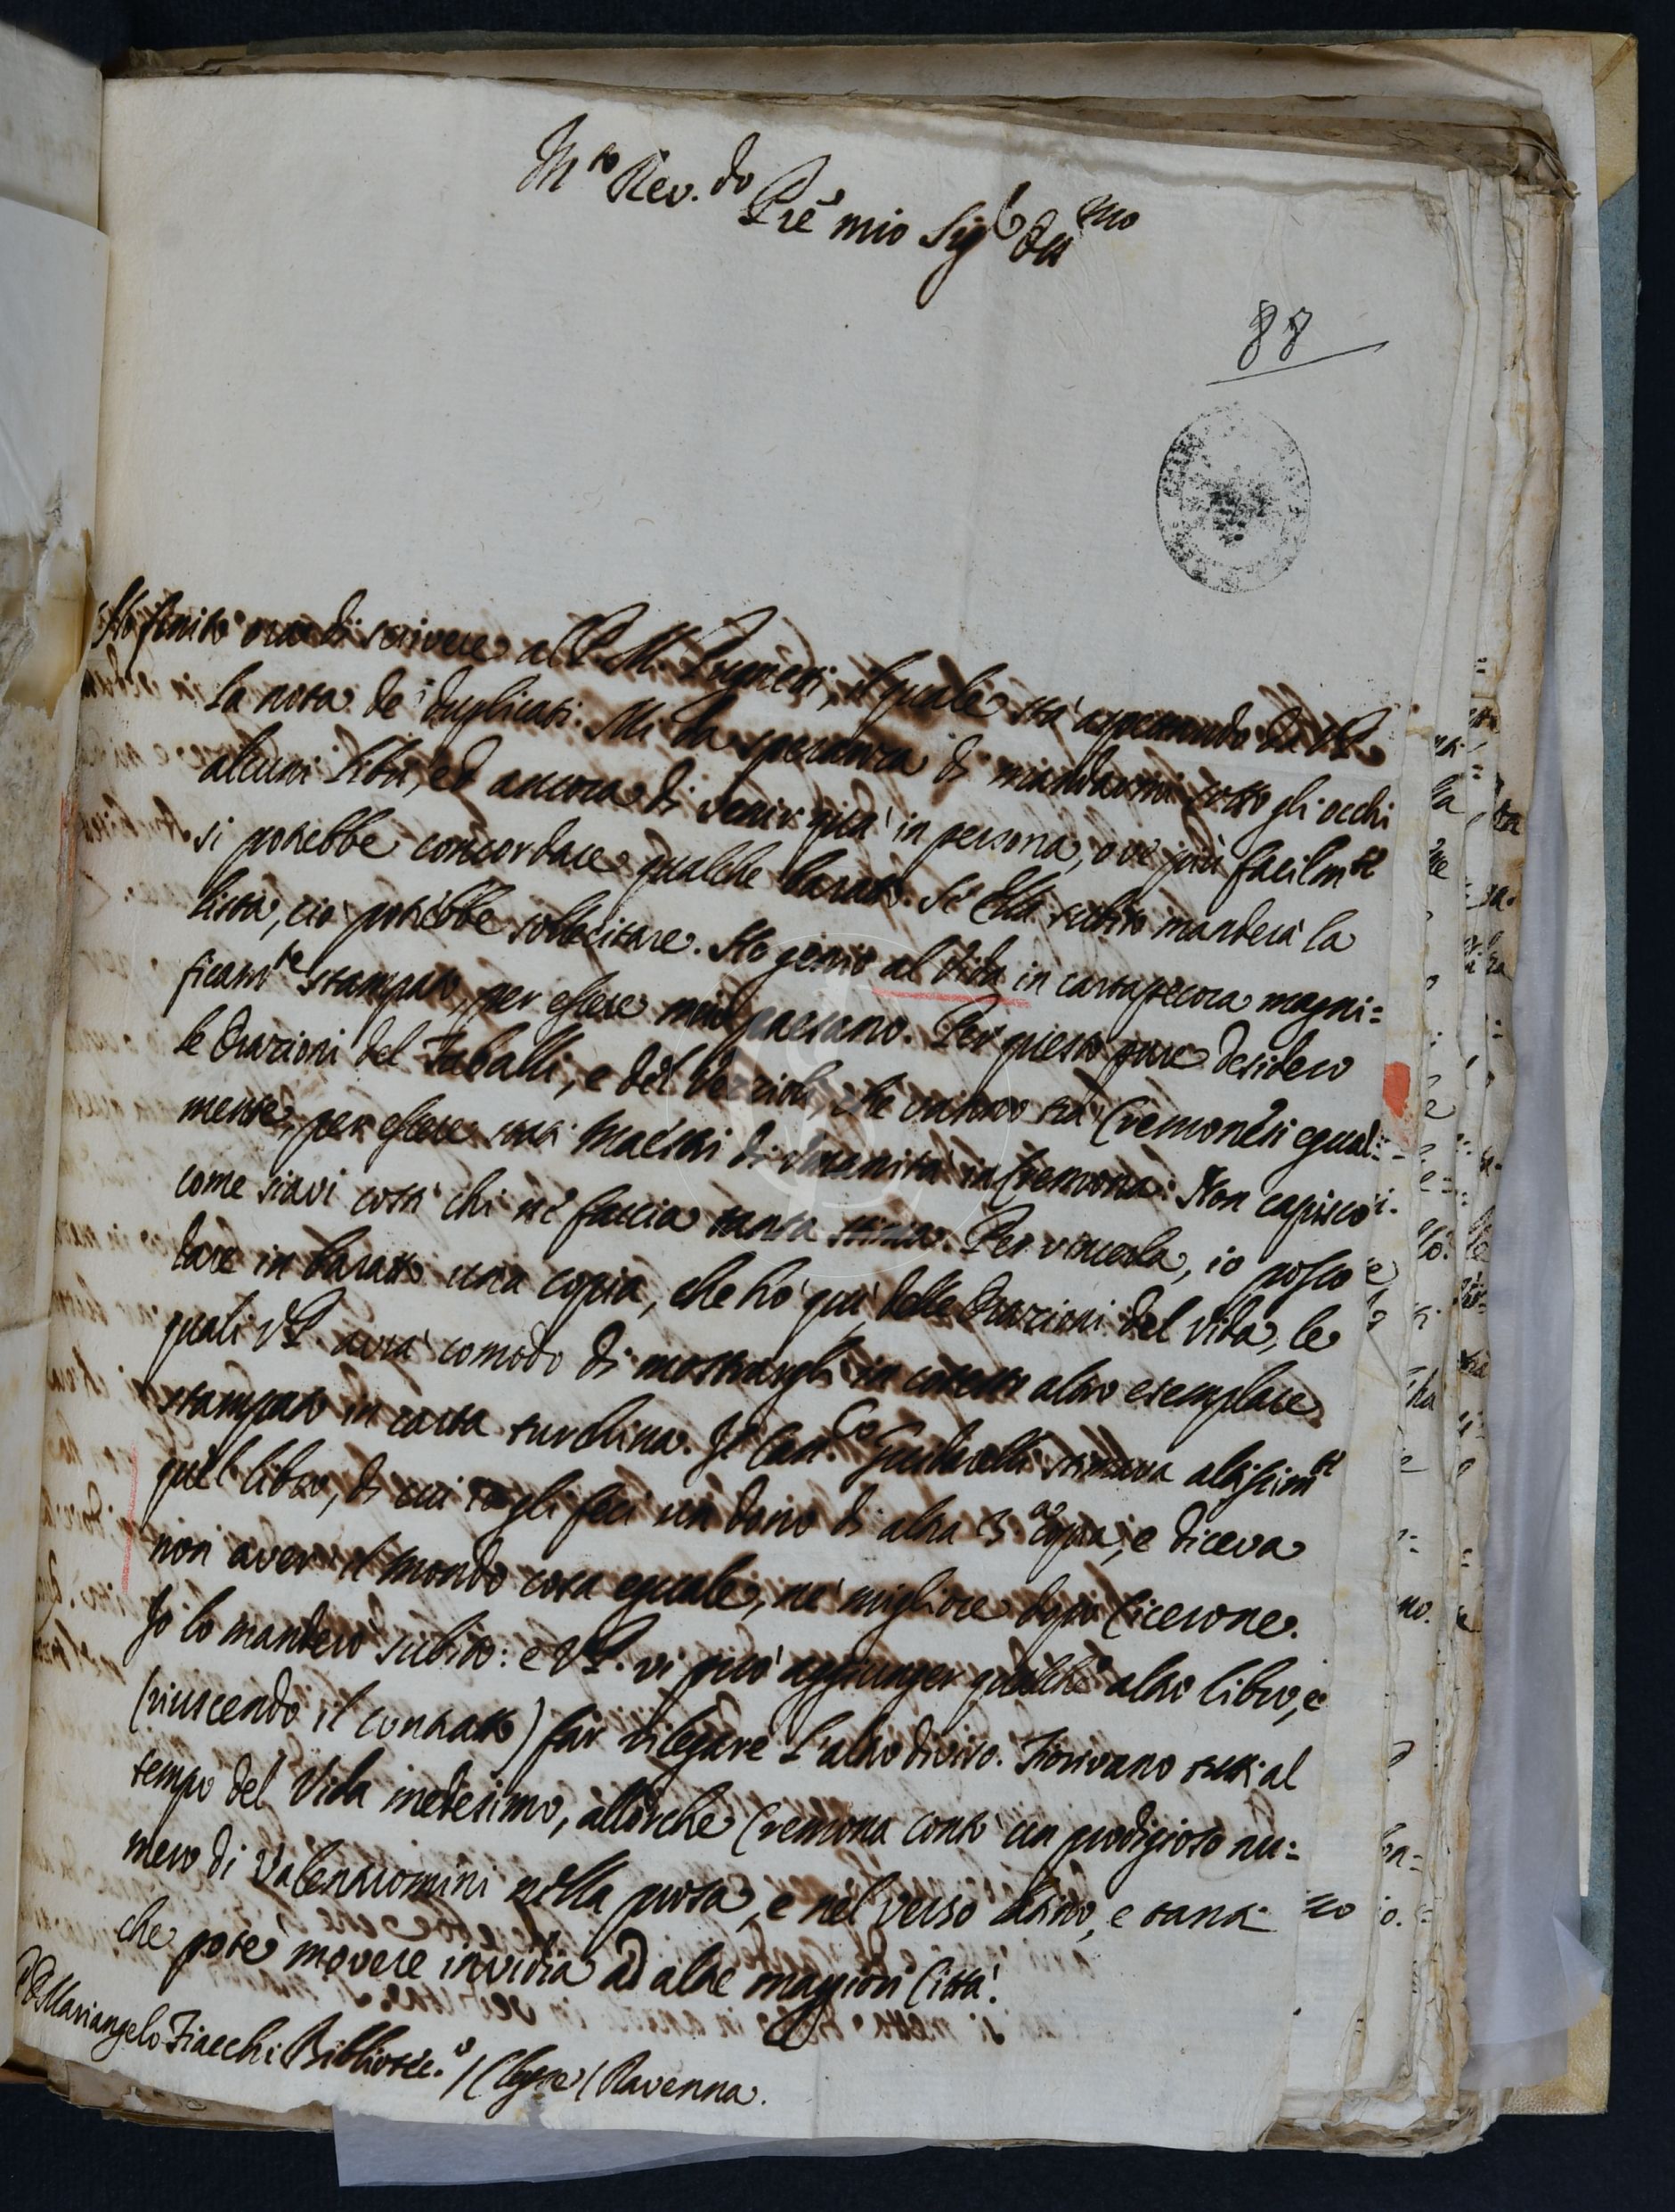 M.to Rev.do Prē mio Sig.r Col.mo
88
Ho finito ora di scrivere al P. M. Pugnetti, il quale stà aspettando da V.P.
la nota de' duplicati. Mi da speranza di mandarmi sotto gli occhi
alcuni libri, ed ancora di venir quà in persona, ove più facilm.te
si potrebbe concordare qualche baratto. Se Ella subito manderà la
lista, ciò potrebbe sollecitare. Ho genio al Vida in cartapecora magni=
ficam.te stampato, per essere mio paesano. Per questo pure desidero
le Orazioni del, e del, che vanno trà Cremonesi egual=
mente, per essere stati Maestri di Umanità in Cremona. Non capisco
come siavi costì chi ne faccia tanta stima. Per vincerla, io posso
dare in baratto una copia, che hò quì, delle Orazioni del Vida, le
quali V.P. avrà comodo di mostrargli in altro esemplare
stampato in carta turchina. Il Can.co stimava altissim.te
quel libro, di cui io gli feci un dono di altra 3.a copia, e diceva
non aver il Mondo cosa eguale, nè migliore dopo Cicerone.
Io lo manderò subito: e V.P. vi può aggiunger qualche altro libro, e
(riuscendo il contratto) far rilegare l'altro diviso. Fiorivano tutti al
tempo del Vida medesimo, allorche Cremona contò un prodigioso nu=
mero di Valentuomini nella prosa, e nel verso latino, e tanti
che potè movere invidia ad altre maggiori Città.
P. D. Mariangelo Fiacchi Bibliotec.o / Classe / Ravenna.